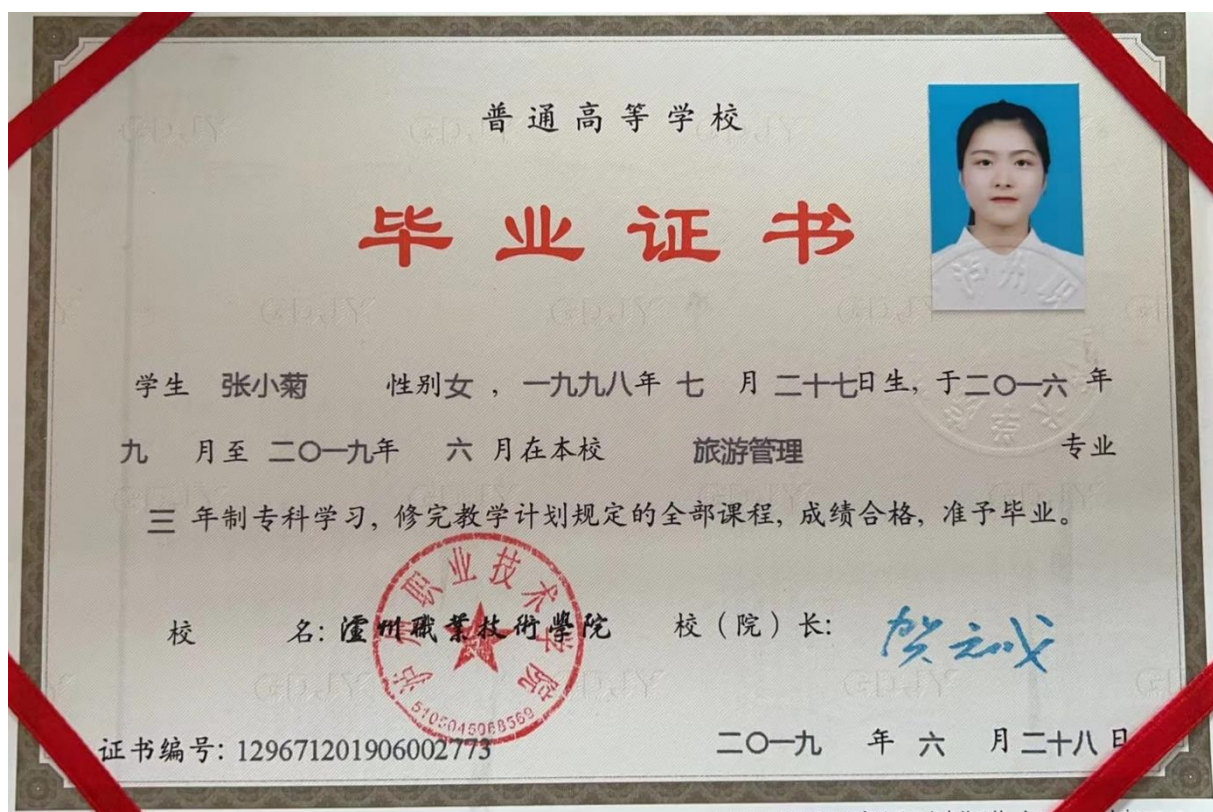 普通高等学校
毕业证书
学生 张小菊 性别女，一九九八年 七 月 二十七日生，于二〇一六 年
九 月至 二〇一九年 六 月在本校 旅游管理 专业
三 年制专科学习，修完教学计划规定的全部课程，成绩合格，准予毕业。
校 名：瀘州職業技術學院 校（院）长：贺元成
泸州职业技术学院
5105045068569
证书编号：129671201906002773 二〇一九 年 六 月二十八日
泸州职